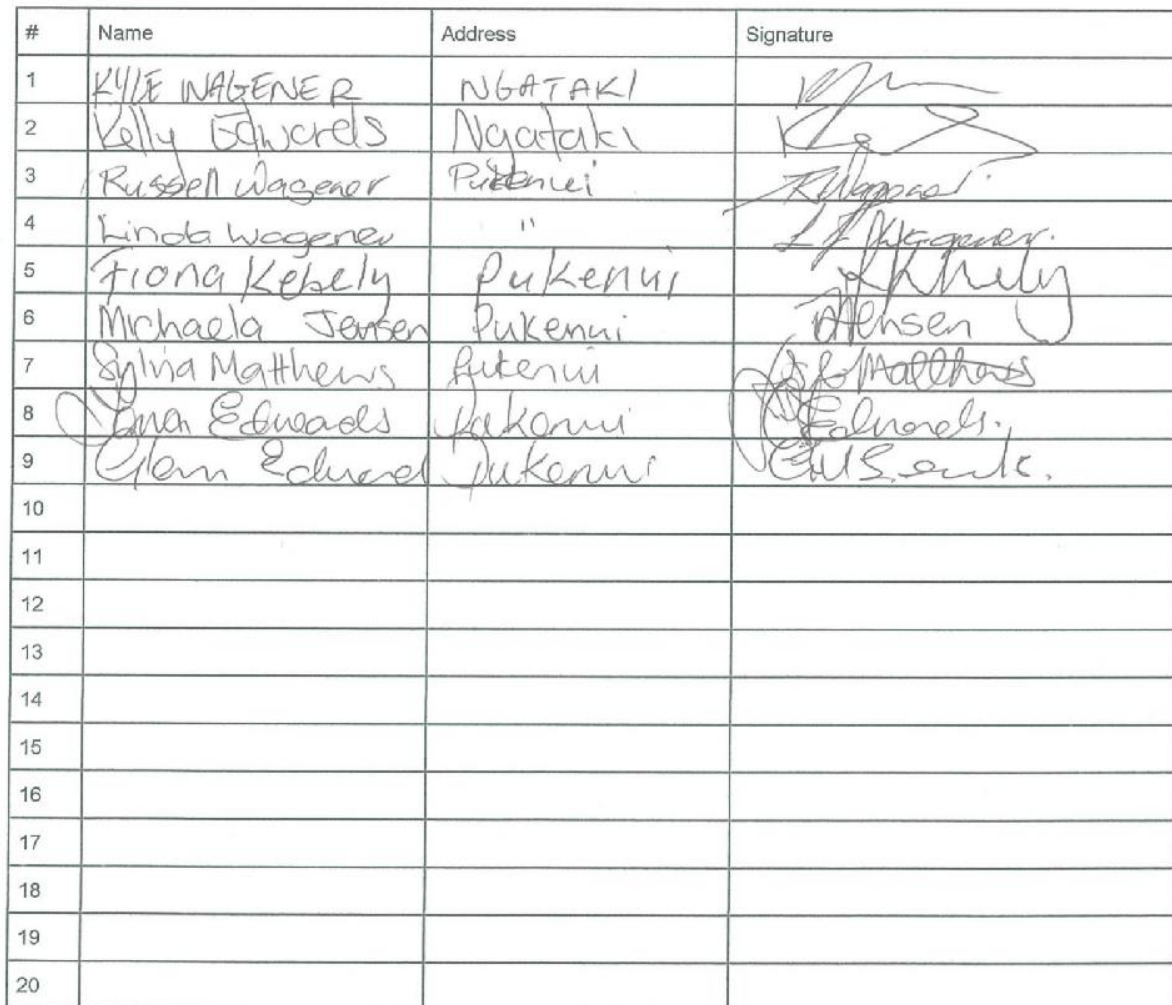 # Name Address Signature
1 KYLE WAGENER NGATAKI
2 Kelly Edwards Ngataki
3 Russell Wagener Pukenui RWagener.
4 Linda Wagener " L F Wagener.
5 Fiona Kebely Pukenui
6 Michaela Jensen Pukenui MJensen
7 Sylvia Matthews Pukenui Matthews
8 Edwards Pukenui Edwards.
9 Glenn Edward Pukenui
10
11
12
13
14
15
16
17
18
19
20